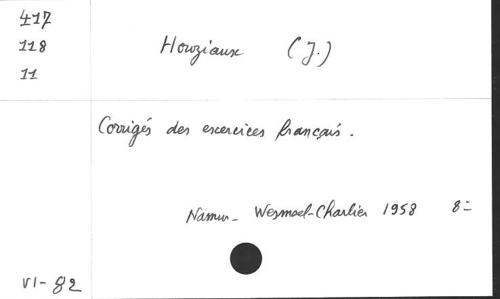 417
118
11
Houziaux (J.)
Corrigés des exercices français.
Namur- Wesmael-Charlier 1958 8=
VI-82